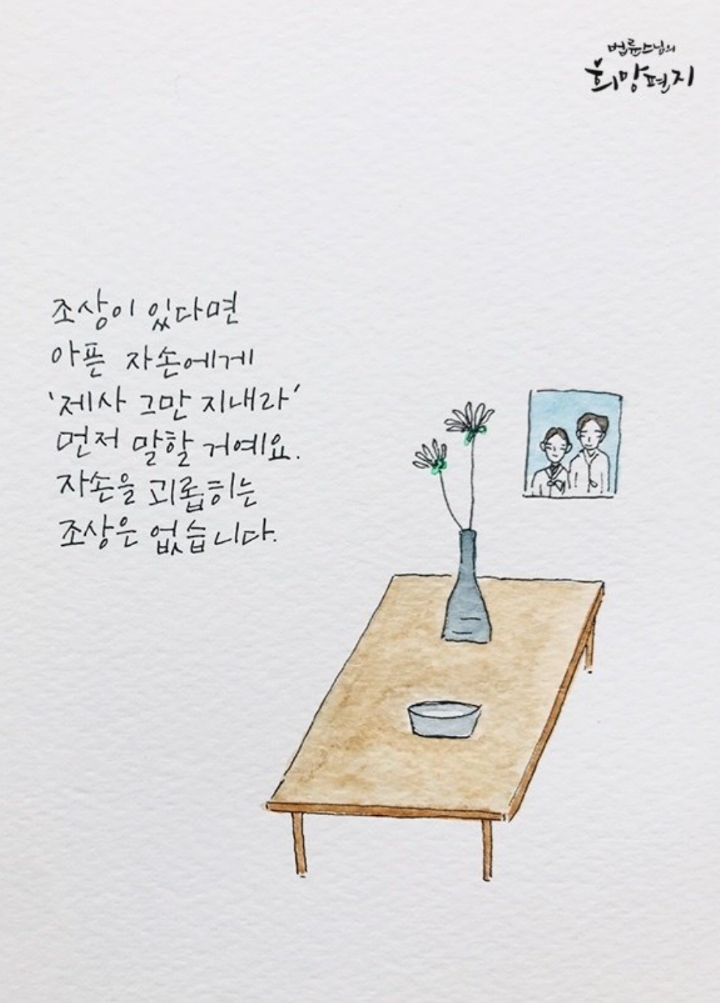 법륜스님의
희망편지
조상이 있다면
아픈 자손에게
'제사 그만 지내라'
먼저 말할 거예요.
자손을 괴롭히는
조상은 없습니다.